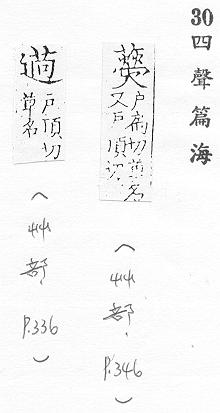 30四聲篇海
戶扃切草名
又戶頂切
(艸部, P.346)
戶頂切
草名
(艸部, P.336)